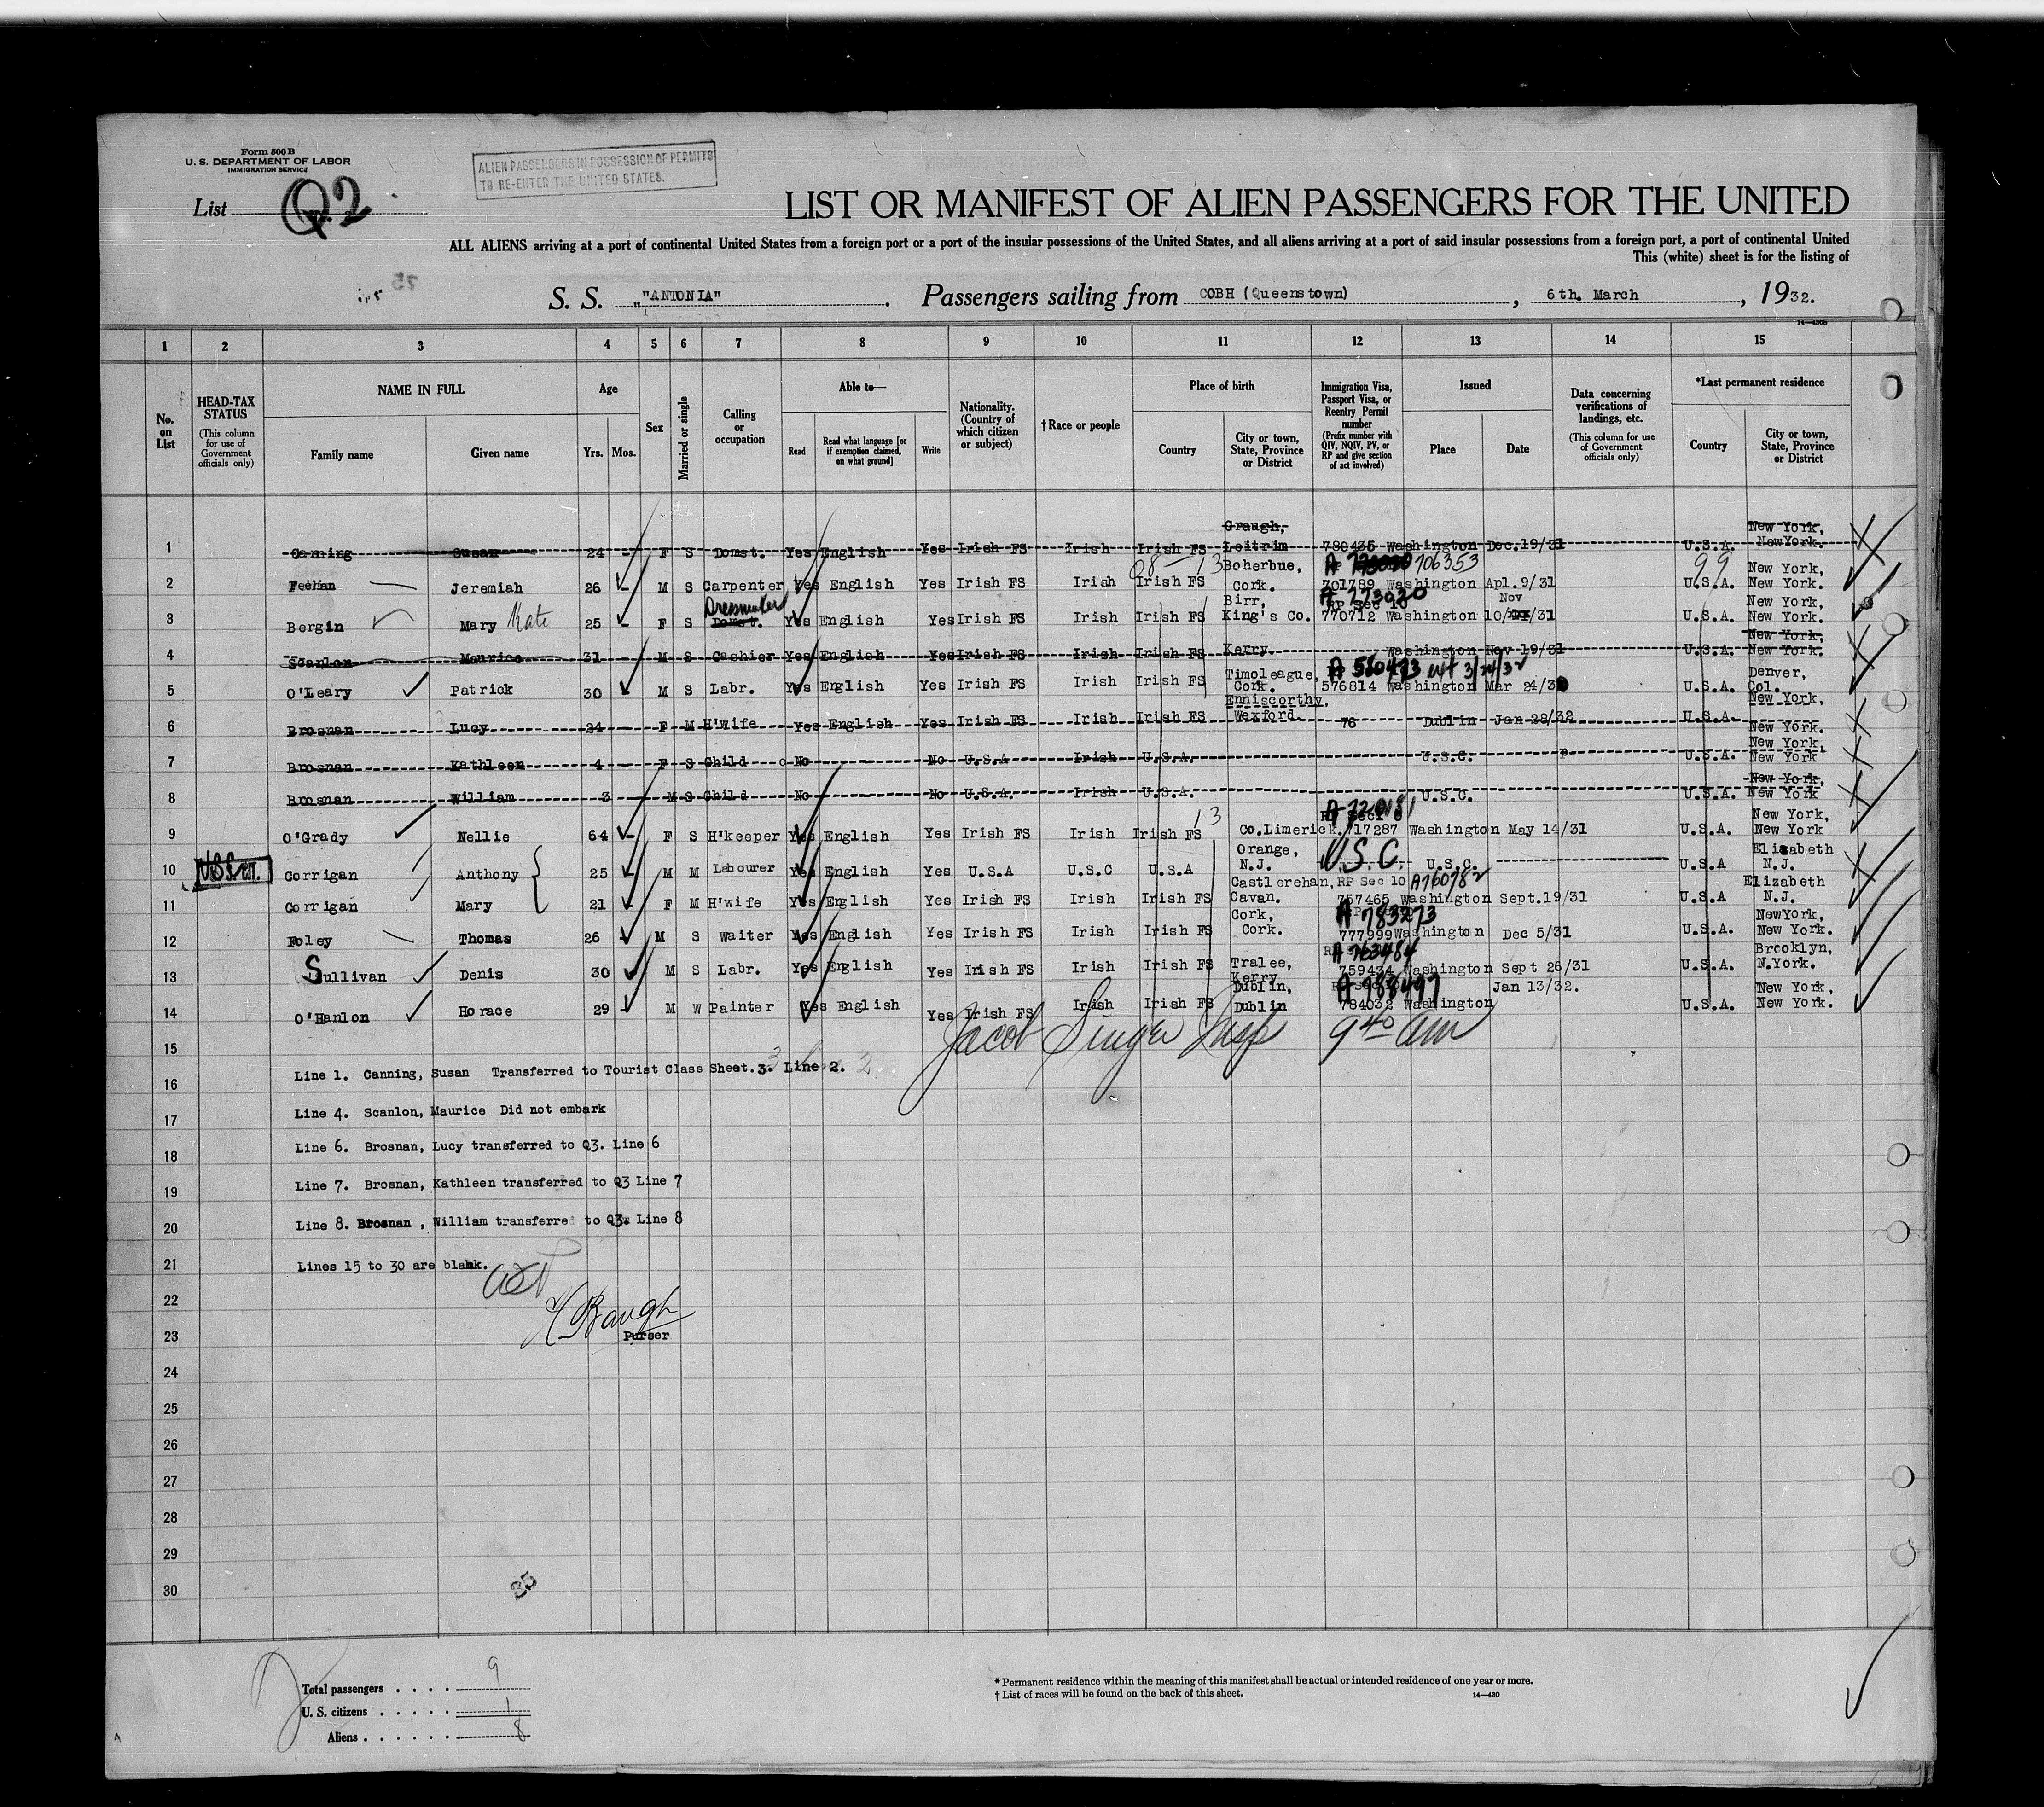 Form 500 B
U. S. DEPARTMENT OF LABOR
IMMIGRATION SERVICE
ALIEN PASSENGERS IN POSSESSION OF PERMITS
TO RE-ENTER THE UNITED STATES.
List Q2
LIST OR MANIFEST OF ALIEN PASSENGERS FOR THE UNITED
ALL ALIENS arriving at a port of continental United States from a foreign port or a port of the insular possessions of the United States, and all aliens arriving at a port of said insular possessions from a foreign port, a port of continental United
This (white) sheet is for the listing of
S. S. "ANTONIA" . Passengers sailing from COBH (Queenstown) , 6th. March , 1932.
14-430b
1 2 3 4 5 6 7 8 9 10 11 12 13 14 15
No. on List
HEAD-TAX STATUS (This column for use of Government officials only)
NAME IN FULL
Family name Given name
Age
Yrs. Mos.
Sex
Married or single
Calling or occupation
Able to—
Read Read what language [or if exemption claimed, on what ground] Write
Nationality. (Country of which citizen or subject)
†Race or people
Place of birth
Country City or town, State, Province or District
Immigration Visa, Passport Visa, or Reentry Permit number (Prefix number with QIV, NQIV, PV, or RP and give section of act involved)
Issued
Place Date
Data concerning verifications of landings, etc. (This column for use of Government officials only)
*Last permanent residence
Country City or town, State, Province or District
1 Canning Susan 24 - F S Domst. Yes English Yes Irish FS Irish Irish FS Graugh, Leitrim 780435 Washington Dec.19/31 U.S.A. New York, NewYork.
2 Feehan Jeremiah 26 - M S Carpenter Yes English Yes Irish FS Irish Irish FS Boherbue, Cork. A 706353 701789 Washington Apl.9/31 U.S.A. 99 New York, New York.
3 Bergin Mary Kate 25 - F S Domst. Dressmaker Yes English Yes Irish FS Irish Irish FS Birr, King's Co. A-773020 RP Sec 10 770712 Washington Nov 10/31 U.S.A. New York, New York.
4 Scanlon Maurice 31 - M S Cashier Yes English Yes Irish FS Irish Irish FS Kerry. Washington Nov 19/31 U.S.A. New York, New York.
5 O'Leary Patrick 30 M S Labr. Yes English Yes Irish FS Irish Irish FS Timoleague, Cork. A 560473 ext 3/24/32 576814 Washington Mar 24/3 U.S.A. Denver, Col.
6 Brosnan Lucy 24 - F M H'wife Yes English Yes Irish FS Irish Irish FS Enniscorthy, Wexford. 76 Dublin Jan 28/32 U.S.A. New York, New York.
7 Brosnan Kathleen 4 - F S Child No No U.S.A Irish U.S.A. U.S.C. U.S.A. New York, New York
8 Brosnan William 3 M S Child No No U.S.A. Irish U.S.A. U.S.C. U.S.A. New York, New York
9 O'Grady Nellie 64 - F S H'keeper Yes English Yes Irish FS Irish Irish FS 13 Co.Limerick. 717287 Washington May 14/31 U.S.A. New York, New York
10 Corrigan Anthony 25 - M M Labourer Yes English Yes U.S.A U.S.C U.S.A Orange, N.J. U.S.C. U.S.C. U.S.A Elizabeth N.J.
11 Corrigan Mary 21 - F M H'wife Yes English Yes Irish FS Irish Irish FS Castlerehan, Cavan. RP Sec 10 A760782 757465 Washington Sept.19/31 U.S.A Elizabeth N.J.
12 Foley Thomas 26 - M S Waiter Yes English Yes Irish FS Irish Irish FS Cork, Cork. A 783273 777999 Washington Dec 5/31 U.S.A. NewYork, New York.
13 Sullivan Denis 30 M S Labr. Yes English Yes Irish FS Irish Irish FS Tralee, Kerry A 763484 759434 Washington Sept 26/31 U.S.A. Brooklyn, N.York.
14 O'Hanlon Horace 29 - M W Painter Yes English Yes Irish FS Irish Irish FS Dublin, Dublin A 788497 784032 Washington Jan 13/32. U.S.A. New York, New York.
15 Jacob Singer Insp 9 40 am
16 Line 1. Canning, Susan Transferred to Tourist Class Sheet. 3. Line 2.
17 Line 4. Scanlon, Maurice Did not embark
18 Line 6. Brosnan, Lucy transferred to Q3. Line 6
19 Line 7. Brosnan, Kathleen transferred to Q3 Line 7
20 Line 8. Brosnan , William transferred to Q3. Line 8
21 Lines 15 to 30 are blank.
22
23 H Baugh
Purser
24
25
26
27
28
29
30
35
Total passengers . . . . 9
U. S. citizens . . . . . 1
Aliens . . . . . . 8
* Permanent residence within the meaning of this manifest shall be actual or intended residence of one year or more.
† List of races will be found on the back of this sheet. 14—430